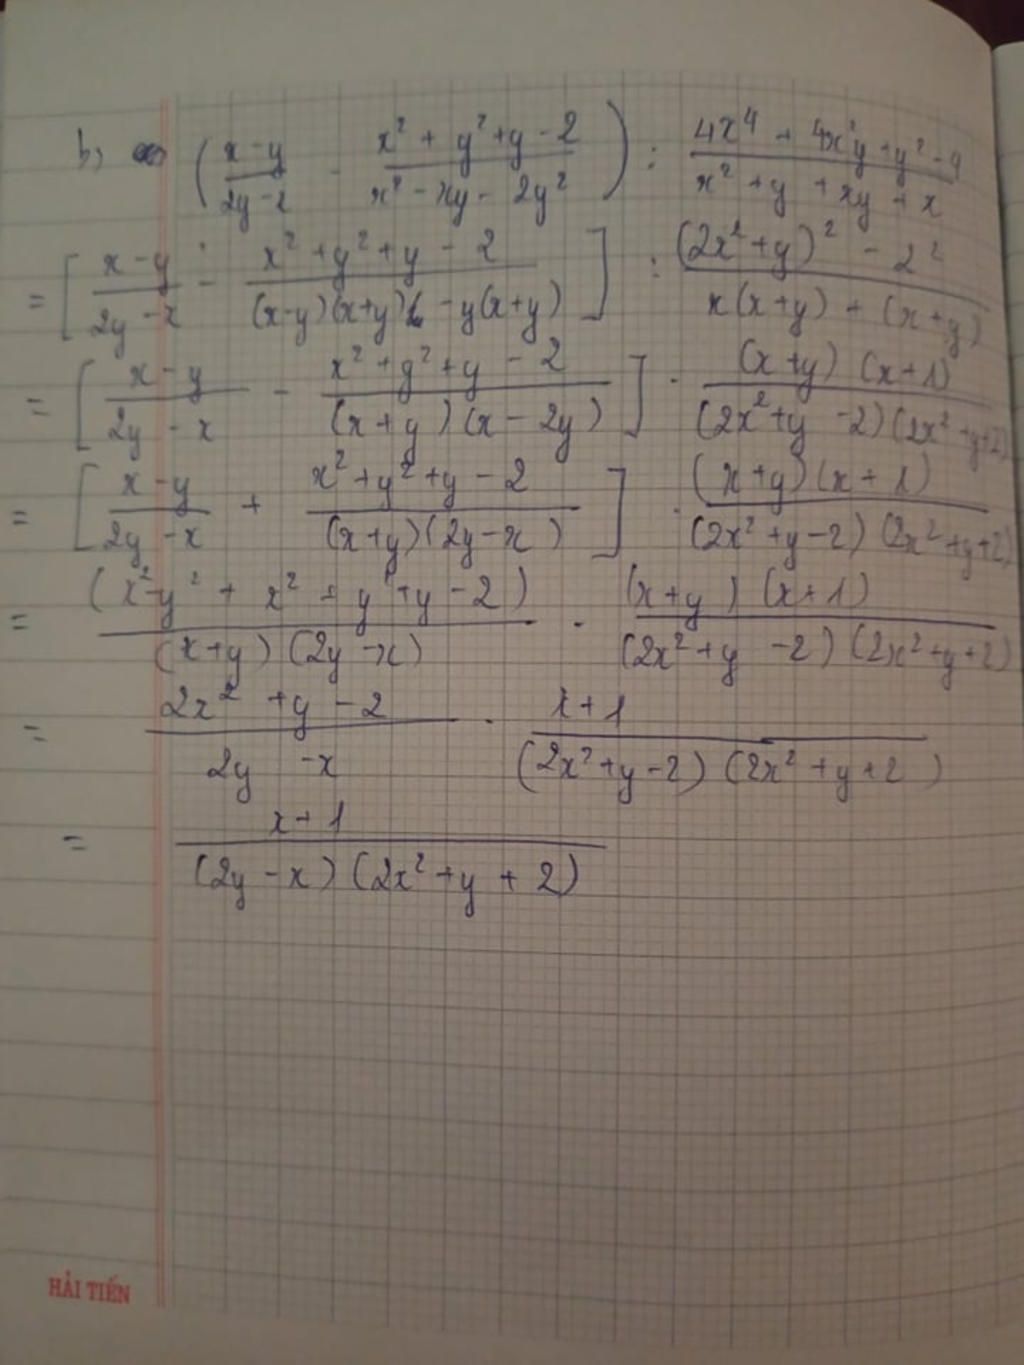 b, ( x-y / 2y-x - x² + y² + y - 2 / x² - xy - 2y² ) : 4x⁴ + 4x²y + y² - 4 / x² + y + xy + x
= [ x-y / 2y-x - x² + y² + y - 2 / (x-y)(x+y) - y(x+y) ] : (2x² + y)² - 2² / x(x+y) + (x+y)
= [ x-y / 2y-x - x² + y² + y - 2 / (x+y)(x-2y) ] . (x+y)(x+1) / (2x² + y - 2)(2x² + y + 2)
= [ x-y / 2y-x + x² + y² + y - 2 / (x+y)(2y-x) ] . (x+y)(x+1) / (2x² + y - 2)(2x² + y + 2)
= (x² - y² + x² + y² + y - 2) / (x+y)(2y-x) . (x+y)(x+1) / (2x² + y - 2)(2x² + y + 2)
= 2x² + y - 2 / 2y - x . x+1 / (2x² + y - 2)(2x² + y + 2)
= x+1 / (2y-x)(2x² + y + 2)
HẢI TIẾN